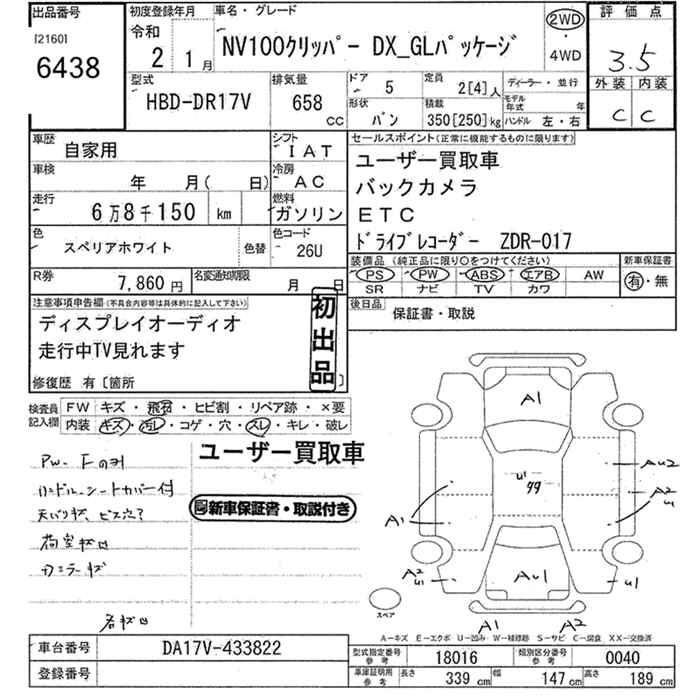 出品番号
[2160]
6438
初度登録年月
令和
2 1月
車名・グレード
NV100クリッパー DX_GLパッケージ
2WD
・
4WD
評価点
3.5
外装 内装
C C
型式
HBD-DR17V
排気量
658 CC
ドア
5
定員
2[4]人
ディーラー・並行
形状
バン
積載
350[250]kg
モデル年式 年
ハンドル 左・右
車歴
自家用
シフト
IAT
車検
年 月( 日)
冷房
AC
走行
6万8千150 km
燃料
ガソリン
色
スペリアホワイト
色替
色コード
26U
R券
7,860円
名変通知期限
月 日
セールスポイント(正常に機能するものに限ります)
ユーザー買取車
バックカメラ
ETC
ドライブレコーダー ZDR-017
装備品(純正品に限り○をつけてください)
PS PW ABS エアB AW
SR ナビ TV カワ
新車保証書
有・無
後日品
保証書・取説
注意事項申告欄(不具合内容等は具体的に記入して下さい)
ディスプレイオーディオ
走行中TV見れます
初出品
修復歴 有[箇所 ]
検査員記入欄
FW キズ・飛石・ヒビ割・リペア跡・×要
内装 キズ・汚レ・コゲ・穴・スレ・キレ・破レ
ユーザー買取車
新車保証書・取説付き
PW- Fのみ
ハンドル、シートカバー付
荷室
A1
U1
99
AU2
A2
U1
A1
A2
U1
AU1
U1
スペア
A1
A2
A-キズ E-エクボ U-凹み W-補修跡 S-サビ C-腐食 XX-交換済
車台番号
DA17V-433822
登録番号
型式指定番号
参考
18016
類別区分番号
参考
0040
車庫証明用
参考
長さ
339 cm
幅
147 cm
高さ
189 cm